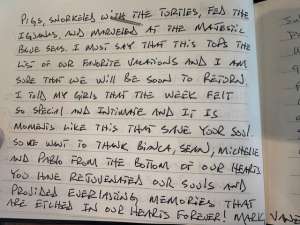 PIGS, SNORKELED WITH THE TURTLES, FED THE
IGUANAS, AND MARVELED AT THE MAJESTIC
BLUE SEAS. I MUST SAY THAT THIS TOPS THE
LIST OF OUR FAVORITE VACATIONS AND I AM
SURE THAT WE WILL BE SOON TO RETURN.
I TOLD MY GIRLS THAT THE WEEK FELT
SO SPECIAL AND INTIMATE AND IT IS
MOMENTS LIKE THIS THAT SAVE YOUR SOUL.
SO WE WANT TO THANK BIANCA, SEAN, MICHELLE
AND PABLO FROM THE BOTTOM OF OUR HEARTS
YOU HAVE REJUVENATED OUR SOULS AND
PROVIDED EVERLASTING MEMORIES THAT
ARE ETCHED IN OUR HEARTS FOREVER! MARK VANE